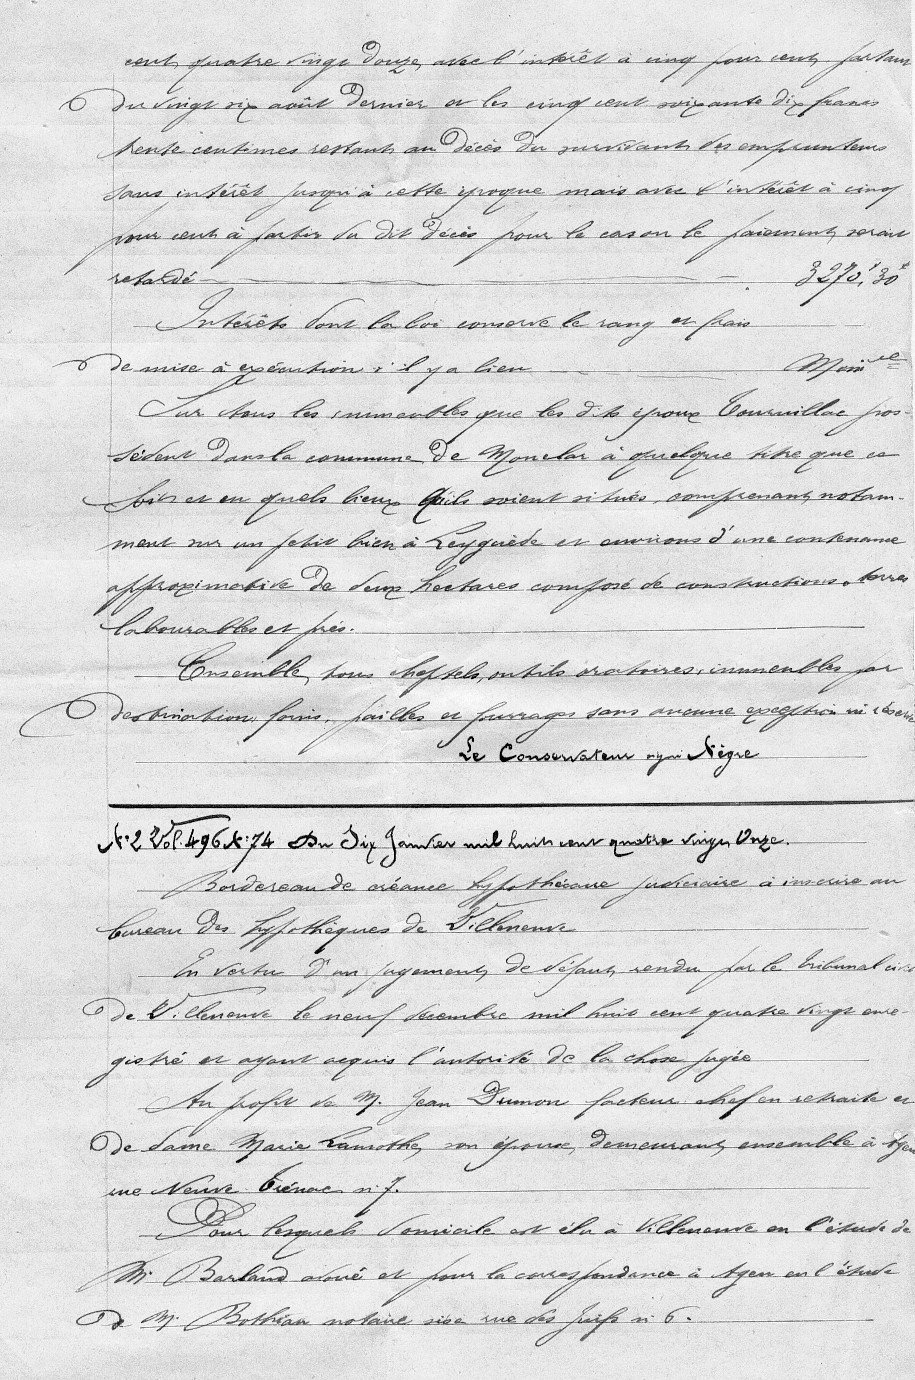 cent quatre vingt douze, avec l'intérêt à cinq pour cent partant
du vingt six août dernier et les cinq cent soixante dix francs
trente centimes restant au décès du survivant des emprunteurs
sans intérêt jusqu'à cette époque mais avec l'intérêt à cinq
pour cent à partir du dit décès pour le cas ou le paiement serait
retardé 3270f,30c
Intérêts dont la loi conserve le rang et frais
de mise à exécution s'il y a lieu
Sur tous les immeubles que les dits époux Tournillac pos-
sèdent dans la commune de Monclar à quelque titre que ce
soit et en quels lieux qu'ils soient situés, comprenant notam-
ment sur un petit bien à Leyguède et environs d'une contenance
approximative de deux hectares composé de constructions, terres
labourables et prés.
Ensemble, tous cheptels, outils aratoires, immeubles par
destination, foins, pailles et fourrages sans aucune exception ni réserve
Le Conservateur signé Nègre
N°2 Vol. 496 N°74 Du Dix Janvier mil huit cent quatre vingt Onze.
Bordereau de créance hypothécaire judiciaire à inscrire au
bureau des hypothèques de Villeneuve
En vertu d'un jugement de défaut rendu par le tribunal civil
de Villeneuve le neuf décembre mil huit cent quatre vingt enre-
gistré et ayant acquis l'autorité de la chose jugée
Au profit de M. Jean Dumon facteur chef en retraite et
de dame Marie Lamothe, son épouse, demeurant ensemble à Agen
rue Neuve Trénac n°7.
Pour lesquels domicile est élu à Villeneuve en l'étude de
Me Barland avoué et pour la correspondance à Agen en l'étude
de Me Bothian notaire sise rue des Juifs n° 6.